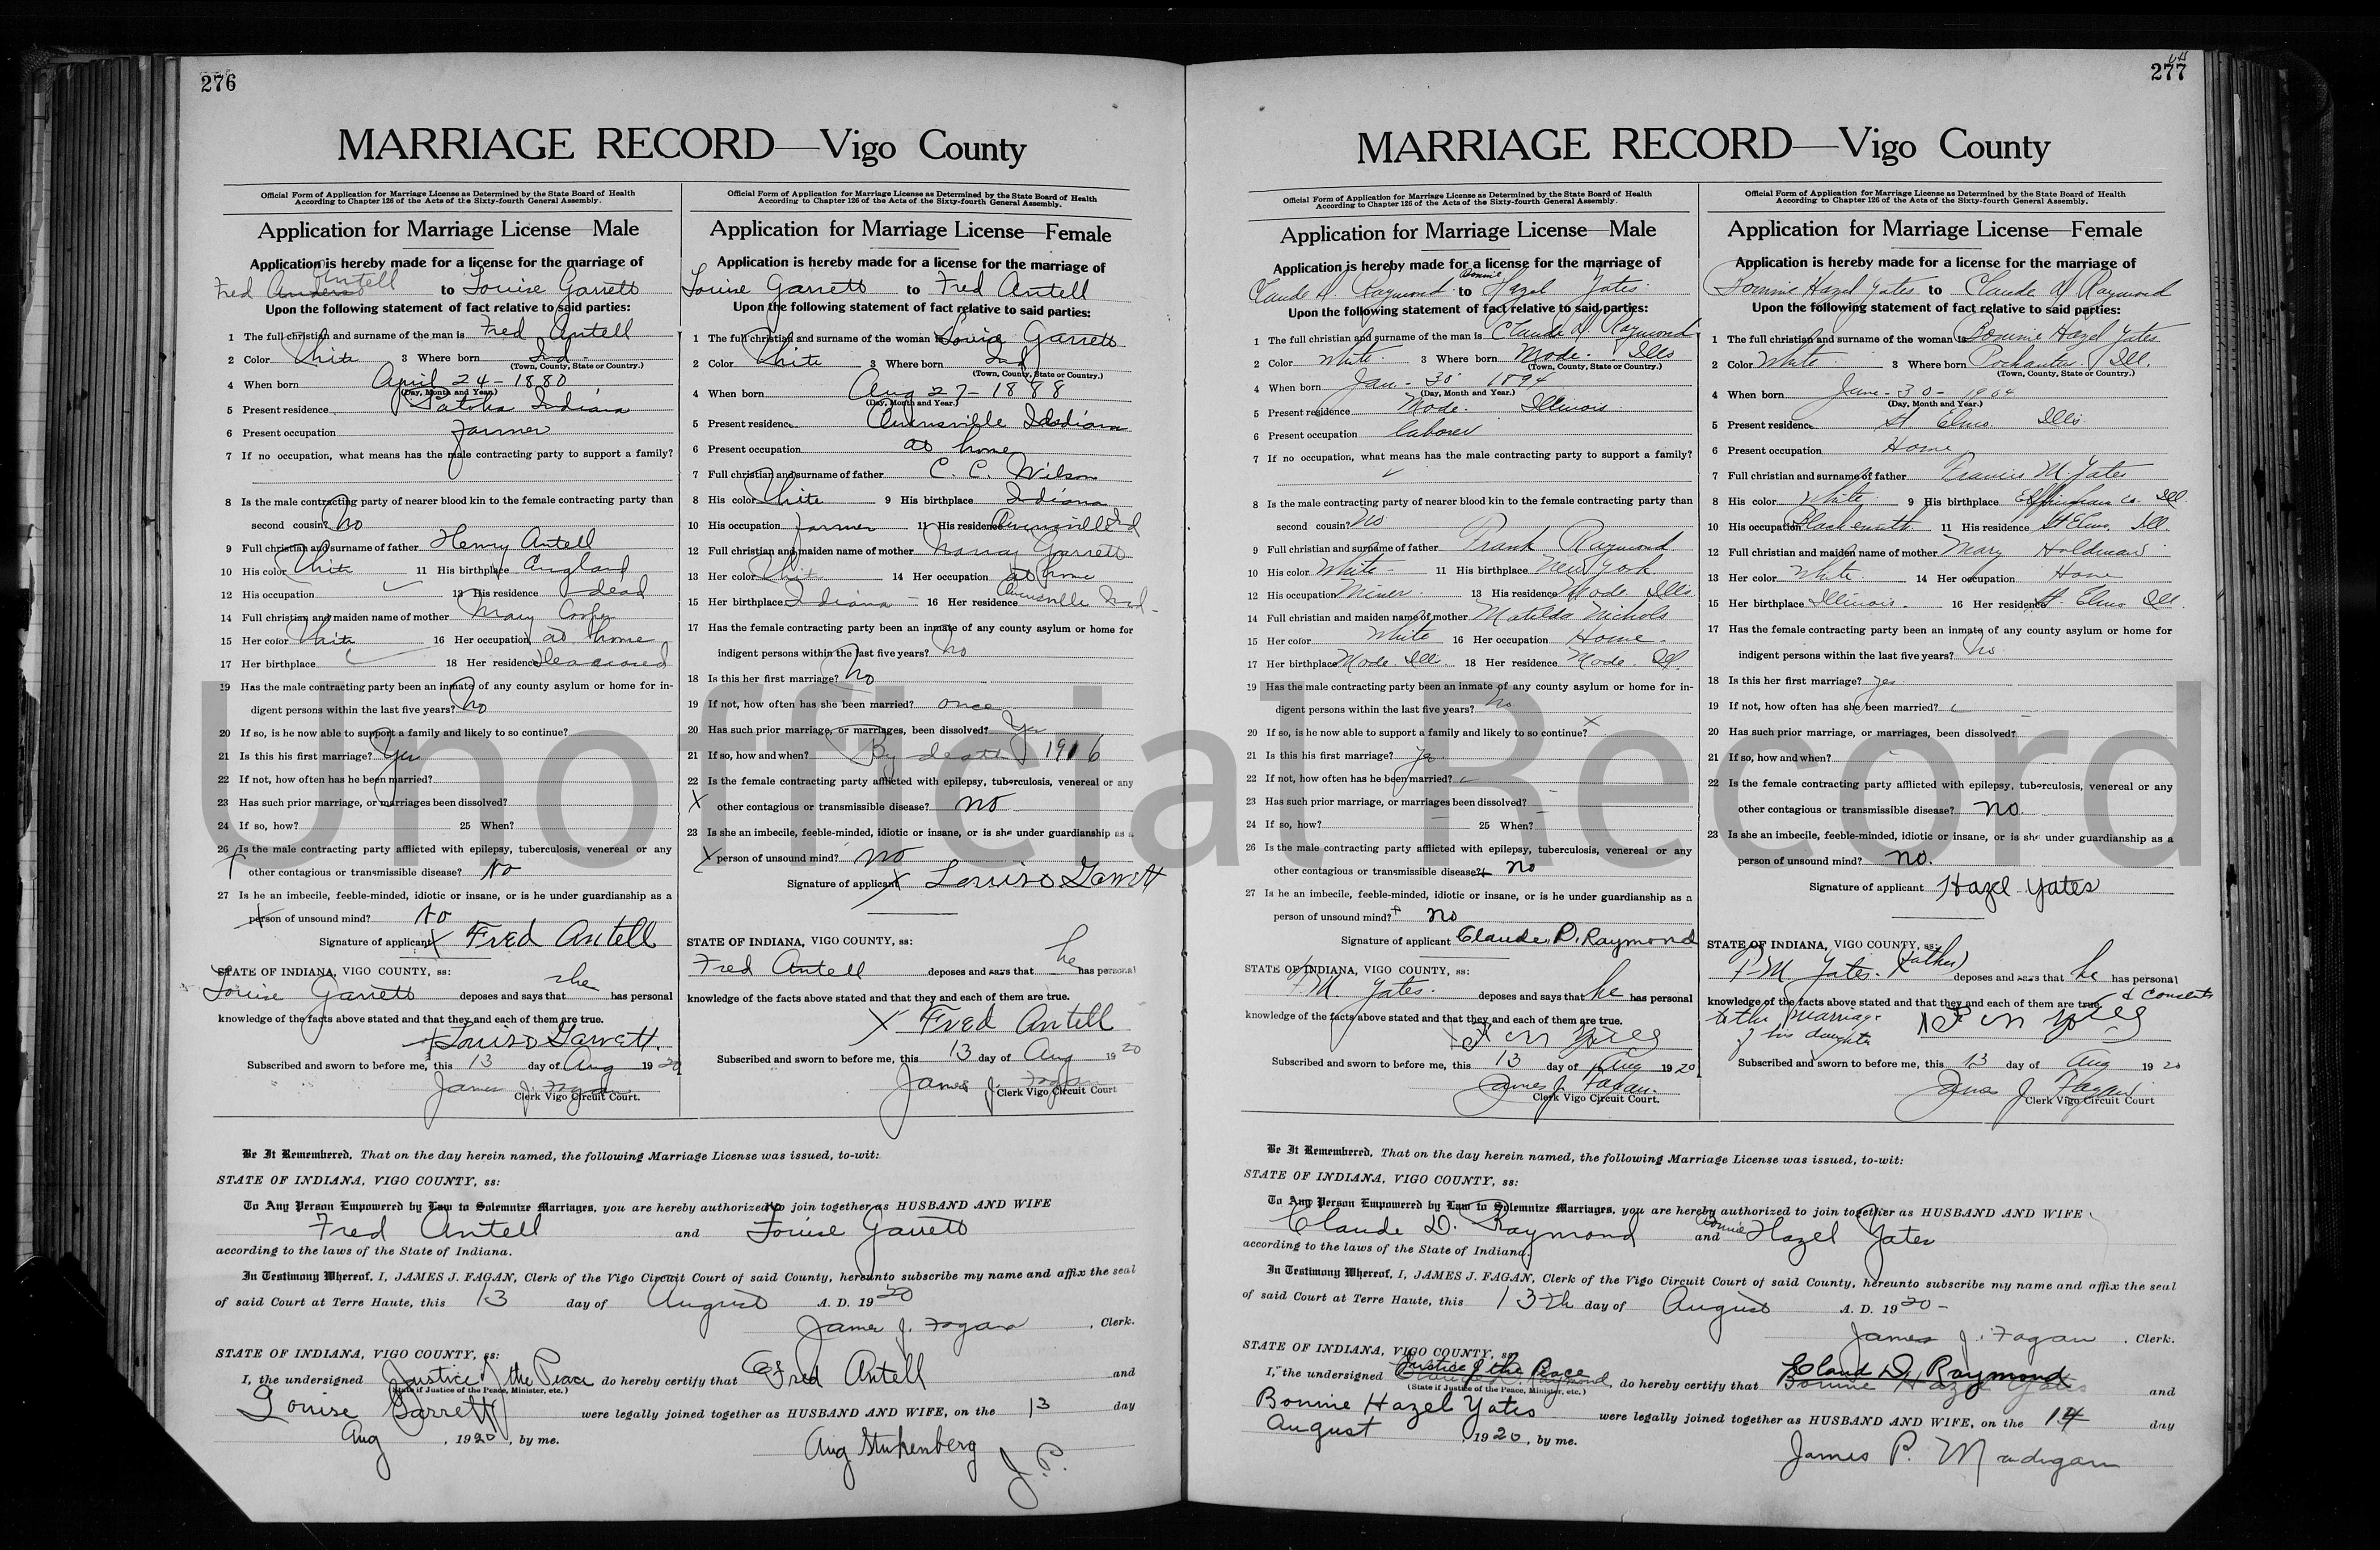 276
MARRIAGE RECORD—Vigo County
Official Form of Application for Marriage License as Determined by the State Board of Health
According to Chapter 126 of the Acts of the Sixty-fourth General Assembly.
Application for Marriage License—Male
Application is hereby made for a license for the marriage of
Antell
Fred to Louise Garrett
Upon the following statement of fact relative to said parties:
1 The full christian and surname of the man is Fred Antell
2 Color White 3 Where born Ind.
(Town, County, State or Country.)
4 When born April 24-1880
(Day, Month and Year.)
5 Present residence Patoka Indiana
6 Present occupation Farmer
7 If no occupation, what means has the male contracting party to support a family?
8 Is the male contracting party of nearer blood kin to the female contracting party than
second cousin? No
9 Full christian and surname of father Henry Antell
10 His color White 11 His birthplace England
12 His occupation 13 His residence dead
14 Full christian and maiden name of mother Mary Cooper
15 Her color White 16 Her occupation at home
17 Her birthplace 18 Her residence
19 Has the male contracting party been an inmate of any county asylum or home for in-
digent persons within the last five years? No
20 If so, is he now able to support a family and likely to so continue?
21 Is this his first marriage? Yes
22 If not, how often has he been married?
23 Has such prior marriage, or marriages been dissolved?
24 If so, how? 25 When?
26 Is the male contracting party afflicted with epilepsy, tuberculosis, venereal or any
X other contagious or transmissible disease? No
27 Is he an imbecile, feeble-minded, idiotic or insane, or is he under guardianship as a
person of unsound mind? No
Signature of applicant X Fred Antell
STATE OF INDIANA, VIGO COUNTY, ss:
Louise Garrett deposes and says that she has personal
knowledge of the facts above stated and that they and each of them are true.
X Louise Garrett.
Subscribed and sworn to before me, this 13 day of Aug 1920
James J. Fagan
Clerk Vigo Circuit Court.
Official Form of Application for Marriage License as Determined by the State Board of Health
According to Chapter 126 of the Acts of the Sixty-fourth General Assembly.
Application for Marriage License—Female
Application is hereby made for a license for the marriage of
Louise Garrett to Fred Antell
Upon the following statement of fact relative to said parties:
1 The full christian and surname of the woman is Garrett
2 Color White 3 Where born Ind
(Town, County, State or Country.)
4 When born Aug 27-1888
(Day, Month and Year.)
5 Present residence Owensville
6 Present occupation at home
7 Full christian and surname of father C. C. Wilson
8 His color White 9 His birthplace Indiana
10 His occupation farmer 11 His residence Owensville Ind
12 Full christian and maiden name of mother Garrett
13 Her color White 14 Her occupation at home
15 Her birthplace Indiana 16 Her residence Owensville Ind.
17 Has the female contracting party been an inmate of any county asylum or home for
indigent persons within the last five years? No
18 Is this her first marriage? No
19 If not, how often has she been married? once
20 Has such prior marriage, or marriages, been dissolved? Yes
21 If so, how and when? By death 1916
22 Is the female contracting party afflicted with epilepsy, tuberculosis, venereal or any
X other contagious or transmissible disease? no
23 Is she an imbecile, feeble-minded, idiotic or insane, or is she under guardianship as a
X person of unsound mind? no
Signature of applicant X Louise Garrett
STATE OF INDIANA, VIGO COUNTY, ss:
Fred Antell deposes and says that he has personal
knowledge of the facts above stated and that they and each of them are true.
X Fred Antell
Subscribed and sworn to before me, this 13 day of Aug 1920
James J. Fagan
Clerk Vigo Circuit Court
Be It Remembered, That on the day herein named, the following Marriage License was issued, to-wit:
STATE OF INDIANA, VIGO COUNTY, ss:
To Any Person Empowered by Law to Solemnize Marriages, you are hereby authorized to join together as HUSBAND AND WIFE
Fred Antell and Louise Garrett
according to the laws of the State of Indiana.
In Testimony Whereof, I, JAMES J. FAGAN, Clerk of the Vigo Circuit Court of said County, hereunto subscribe my name and affix the seal
of said Court at Terre Haute, this 13 day of August A. D. 1920
James J. Fagan, Clerk.
STATE OF INDIANA, VIGO COUNTY, ss:
I, the undersigned Justice of the Peace do hereby certify that Fred Antell and
(State if Justice of the Peace, Minister, etc.)
Louise Garrett were legally joined together as HUSBAND AND WIFE, on the 13 day
Aug, 1920, by me.
Aug Stukenberg J. P.
277
MARRIAGE RECORD—Vigo County
Official Form of Application for Marriage License as Determined by the State Board of Health
According to Chapter 126 of the Acts of the Sixty-fourth General Assembly.
Application for Marriage License—Male
Application is hereby made for a license for the marriage of
Bonnie
Claude D. Raymond to Hazel Yates
Upon the following statement of fact relative to said parties:
1 The full christian and surname of the man is Claude D. Raymond
2 Color White 3 Where born Mode. Ills
(Town, County, State or Country.)
4 When born Jan-30 1894
(Day, Month and Year.)
5 Present residence Mode. Illinois
6 Present occupation laborer
7 If no occupation, what means has the male contracting party to support a family?
8 Is the male contracting party of nearer blood kin to the female contracting party than
second cousin? No
9 Full christian and surname of father Frank Raymond
10 His color White 11 His birthplace New York
12 His occupation Miner 13 His residence Mode Ills
14 Full christian and maiden name of mother Matilda Nichols
15 Her color White 16 Her occupation Home
17 Her birthplace Mode Ill 18 Her residence Mode. Ill.
19 Has the male contracting party been an inmate of any county asylum or home for in-
digent persons within the last five years? No
20 If so, is he now able to support a family and likely to so continue? X
21 Is this his first marriage? Yes
22 If not, how often has he been married?
23 Has such prior marriage, or marriages been dissolved?
24 If so, how? 25 When?
26 Is the male contracting party afflicted with epilepsy, tuberculosis, venereal or any
other contagious or transmissible disease? no
27 Is he an imbecile, feeble-minded, idiotic or insane, or is he under guardianship as a
person of unsound mind? no
Signature of applicant Claude D. Raymond
STATE OF INDIANA, VIGO COUNTY, ss:
F. M. Yates. deposes and says that he has personal
knowledge of the facts above stated and that they and each of them are true.
F M Yates
Subscribed and sworn to before me, this 13 day of Aug 1920
James J. Fagan.
Clerk Vigo Circuit Court.
Official Form of Application for Marriage License as Determined by the State Board of Health
According to Chapter 126 of the Acts of the Sixty-fourth General Assembly.
Application for Marriage License—Female
Application is hereby made for a license for the marriage of
Bonnie Hazel Yates to Claude D Raymond
Upon the following statement of fact relative to said parties:
1 The full christian and surname of the woman is Bonnie Hazel Yates
2 Color White 3 Where born Ill.
(Town, County, State or Country.)
4 When born June-30-1904
(Day, Month and Year.)
5 Present residence St Elmo Ills
6 Present occupation Home
7 Full christian and surname of father Francis M. Yates
8 His color White 9 His birthplace Effingham Co. Ill.
10 His occupation Blacksmith 11 His residence St Elmo, Ill.
12 Full christian and maiden name of mother Mary Holdman
13 Her color White 14 Her occupation Home
15 Her birthplace Illinois. 16 Her residence St. Elmo Ill.
17 Has the female contracting party been an inmate of any county asylum or home for
indigent persons within the last five years? No
18 Is this her first marriage? Yes
19 If not, how often has she been married?
20 Has such prior marriage, or marriages, been dissolved?
21 If so, how and when?
22 Is the female contracting party afflicted with epilepsy, tuberculosis, venereal or any
other contagious or transmissible disease? no.
23 Is she an imbecile, feeble-minded, idiotic or insane, or is she under guardianship as a
person of unsound mind? no.
Signature of applicant Hazel Yates
STATE OF INDIANA, VIGO COUNTY, ss:
F. M Yates. (Father) deposes and says that he has personal
knowledge of the facts above stated and that they and each of them are true & consents
to the marriage
of his daughter F M Yates
Subscribed and sworn to before me, this 13 day of Aug 1920
James J. Fagan
Clerk Vigo Circuit Court
Be It Remembered, That on the day herein named, the following Marriage License was issued, to-wit:
STATE OF INDIANA, VIGO COUNTY, ss:
To Any Person Empowered by Law to Solemnize Marriages, you are hereby authorized to join together as HUSBAND AND WIFE
Claude D. Raymond and Bonnie Hazel Yates
according to the laws of the State of Indiana.
In Testimony Whereof, I, JAMES J. FAGAN, Clerk of the Vigo Circuit Court of said County, hereunto subscribe my name and affix the seal
of said Court at Terre Haute, this 13th day of August A. D. 1920
James J. Fagan, Clerk.
STATE OF INDIANA, VIGO COUNTY, ss
I, the undersigned Justice of the Peace, do hereby certify that Claud D. Raymond and
(State if Justice of the Peace, Minister, etc.)
Bonnie Hazel Yates were legally joined together as HUSBAND AND WIFE, on the 14 day
August, 1920, by me.
James P. Madigan
Unofficial Record